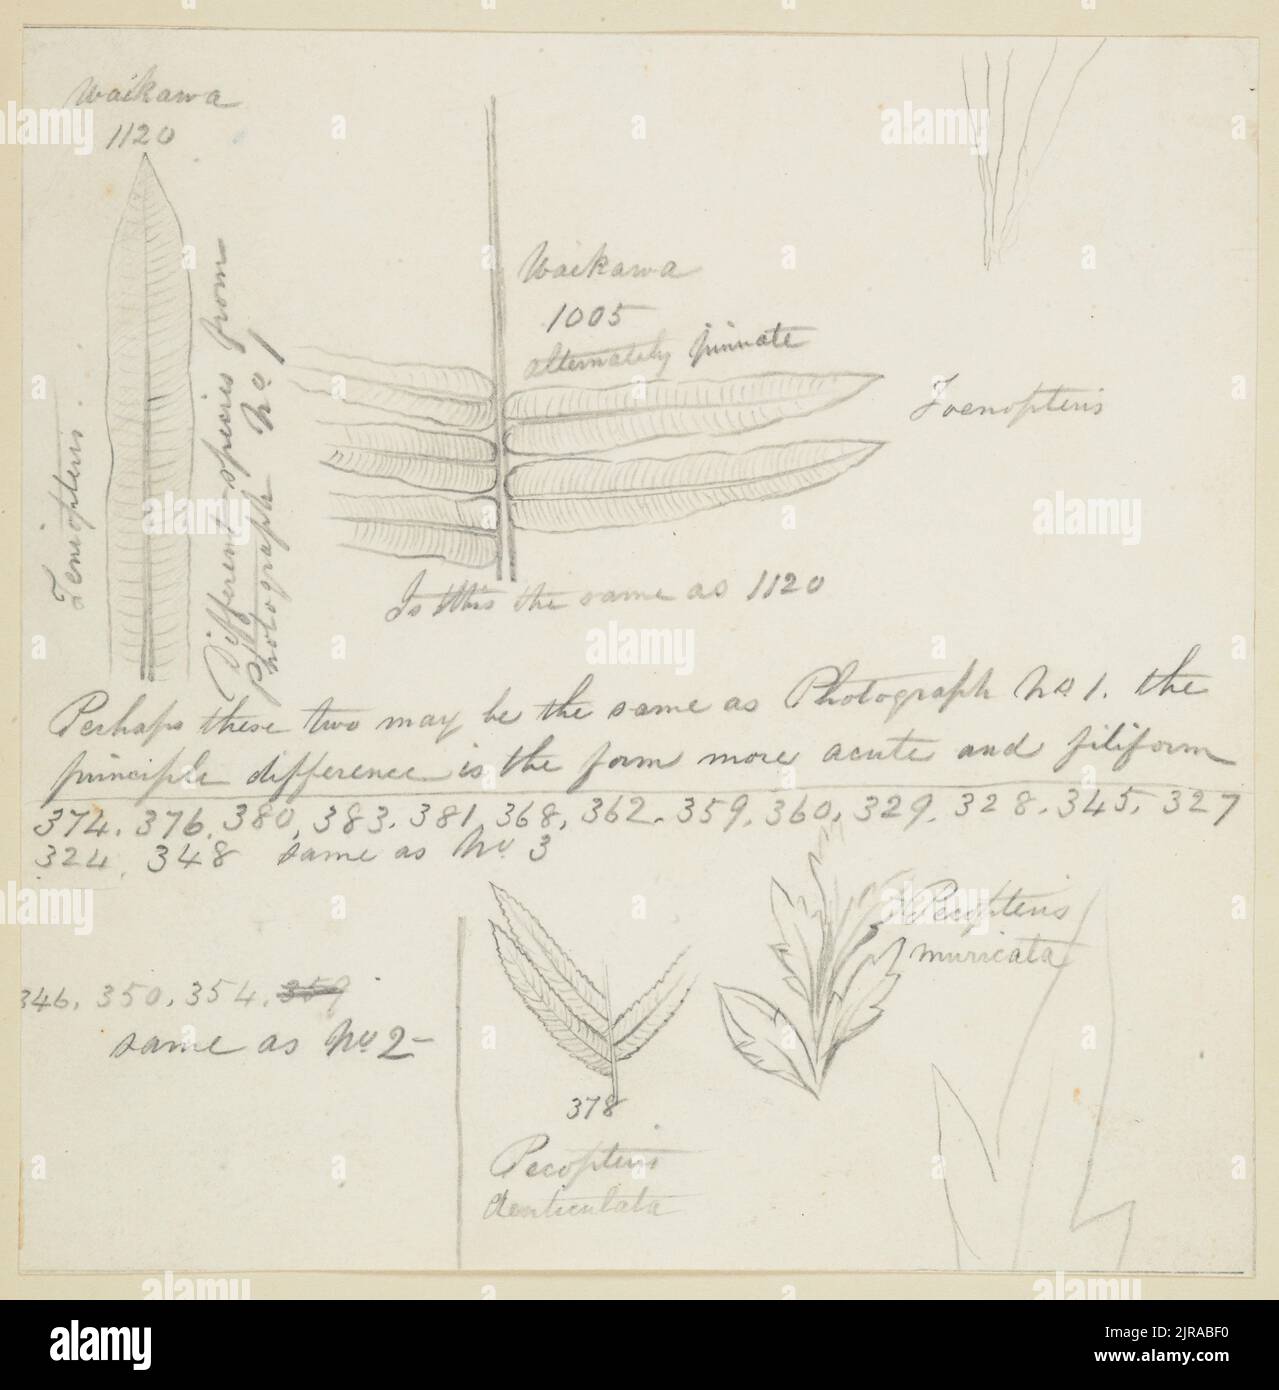 Waikawa
1120
Teniopteris.
Different species from
Photograph No 1
Waikawa
1005
alternately pinnate
Taenopteris
Is this the same as 1120
Perhaps these two may be the same as Photograph No 1. the
principle difference is the form more acute and filiform
374. 376. 380, 383. 381, 368, 362. 359. 360. 329. 328. 345. 327
324. 348 same as No 3
346. 350. 354. 359
same as No 2-
378
Pecopteris
denticulata
Pecopteris
muricata
alamy
Image ID: 2JRABF0
www.alamy.com